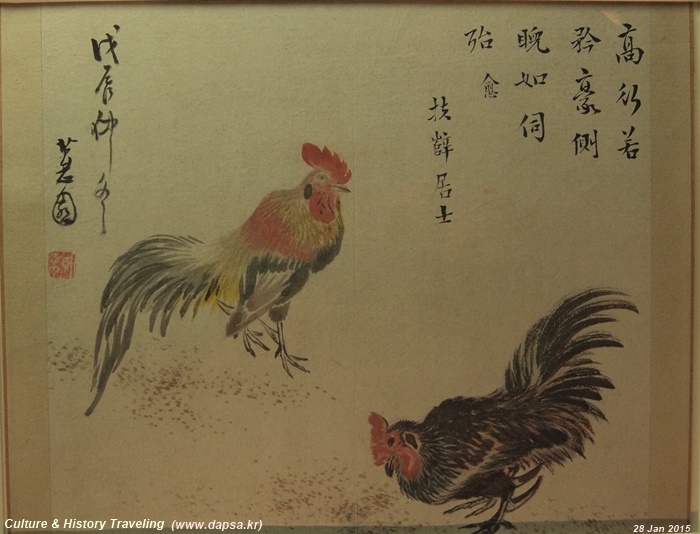 高行若
矜豪側
睨如伺
殆 愈
扶辥居士
戊辰仲冬
蕙園
Culture & History Traveling (www.dapsa.kr)
28 Jan 2015